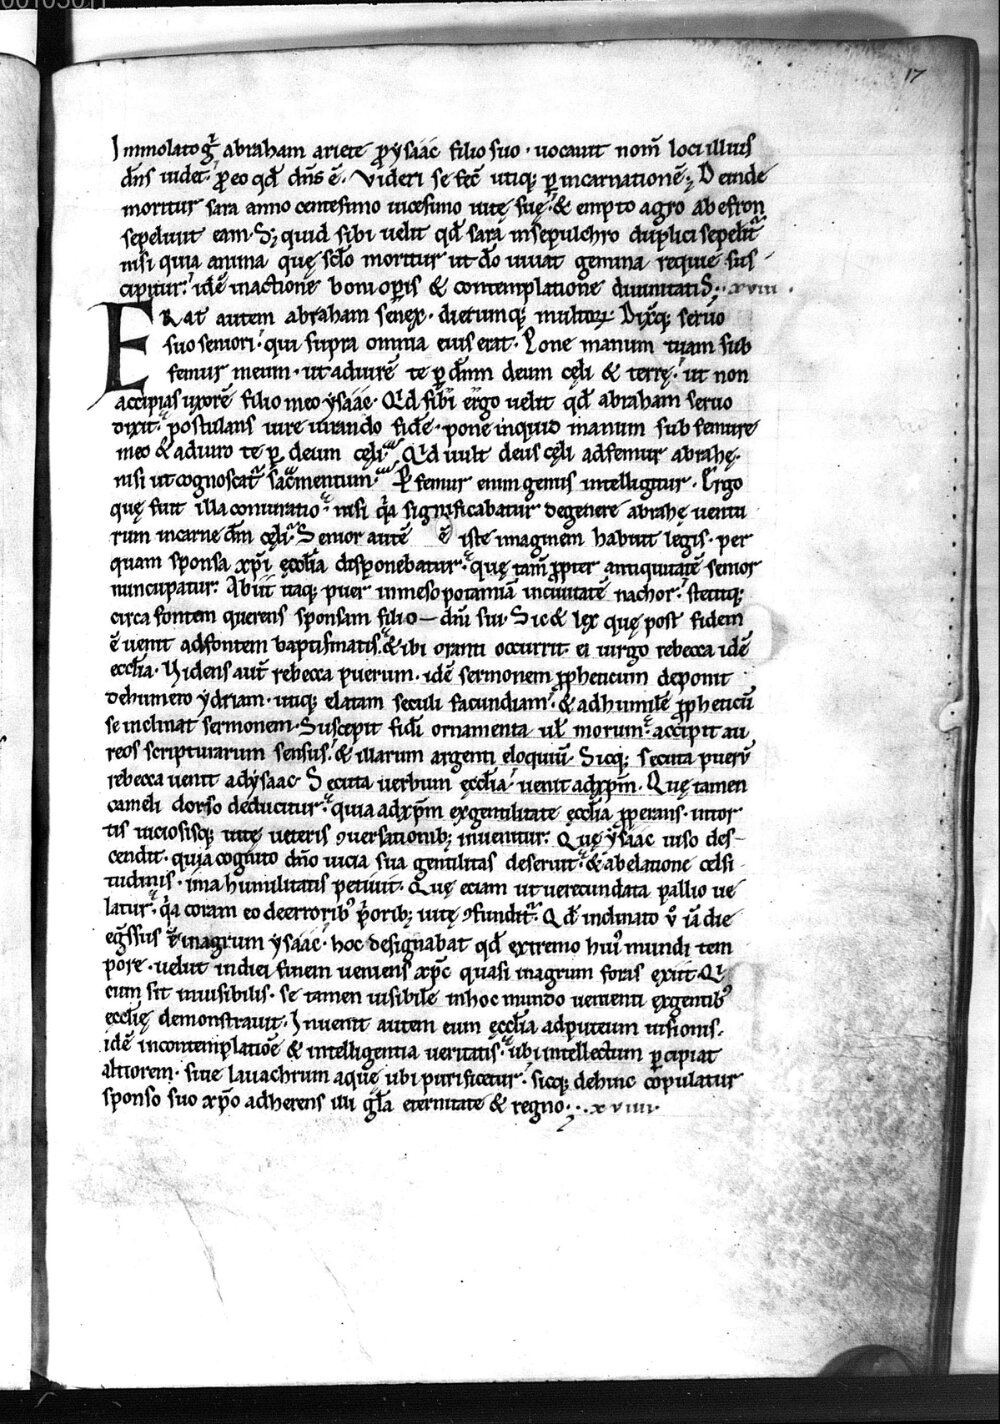 17
Immolato gͬ abraham ariete ꝓ ysaac filio suo · uocauit nom̄ loci illius
dn̄s uidet · ꝓ eo qd̄ dn̄s ē · Videri se fec̄ utiq; ꝑ incarnationē; Deinde
moritur sara anno centesimo uicesimo uitę suę · & empto agro ab efron
sepeliuit eam · S; quid sibi uelit qd̄ sara in sepulchro duplici sepelit᷑
nisi quia anima quę sc̄lo moritur ut dō uiuat gemina requie sus
cipitur · idē in actione boni oꝑis & contemplatione diuinitatis; · xviii ·
ERat autem abraham senex · dierumq; multoꝝ · Dixq; seruo
suo seniori · qui supra omnia eius erat · Pone manum tuam sub
femur meum · ut adiurē te ꝑ dn̄m deum cęli & terrę · ut non
accipias uxorē filio meo ysaac · Qd̄ sibi ergo uelit qd̄ abraham seruo
dixit · postulans iure iurando fidē · pone inquid manum sub femure
meo & adiuro te ꝑ deum cęli · Qd̄ uult deus cęli ad femur abrahę ·
nisi ut cognoscat᷑ sac̄mentum · Ꝑ femur enim genus intelligitur · Ergo
quę fuit illa coniuratio · nisi qͣ significabatur de genere abrahę uentu
rum in carne dm̄ cęli · Senior autē ē iste imaginem habuit legis · per
quam sponsa xp̄i ęcclīa disponebatur · quę tam̄ ꝓpter antiquitatē senior
nuncupatur · Abiit itaq; puer in mesopotamiā in ciuitatē nachor · stetitq;
circa fontem querens sponsam filio dn̄i sui · Sic & lex quę post fidem
ē uenit ad fontem baptismatis · & ibi oranti occurrit ei uirgo rebecca idē
eccl̄ia · Uidens aut̄ rebecca puerum · idē sermonem ꝓpheticum deponit
de humero ydriam · utiq; elatam seculi facundiam · & ad humilē ꝓpheticū
se inclinat sermonem · Suscepit fidī ornamenta ul̄ morum · accipit au
reos scripturarum sensus · & illarum argenti eloquiū · Sicq; secuta puerū
rebecca uenit ad ysaac · Secuta uerbum ęccl̄ia · uenit ad xp̄m · Quę tamen
cameli dorso deducitur · quia ad xp̄m ex gentilitate ęccl̄ia ꝓperans · in tor
tis uiciosisq; uitę ueteris ꝯuersationib; inuenitur · Quę ysaac uiso des-
cendit · quia cognito dn̄o uicia sua gentilitas deseruit · & ab elatione celsi
tudinis · ima humilitatis petiuit · Quę eciam ut uerecundata pallio ue
latur · qͣ coram eo de erroribꝰ p̄orib; uitę ꝯfundit᷑ · Qd̄ inclinato u̾ iā die
eg̃ssus ē in agrum ysaac · hoc designabat qd̄ extremo huiꝰ mundi tem
pore · uelut in diei finem ueniens xp̄c quasi in agrum foras exiit · Qͥ
cum sit inuisibilis · se tamen uisibilē in hoc mundo uenienti ex gentibꝰ
eccl̄ię demonstrauit · Inuenit autem eum ęccl̄ia ad puteum uisionis ·
idē in contemplatiōe & intelligentia ueritatis · ubi intellectum ꝑcipiat
altiorem · siue lauachrum aquę ubi purificetur · sicq; dehinc copulatur
sponso suo xp̄o adherens illi gl̄a eternitate & regno; · xviiii ·